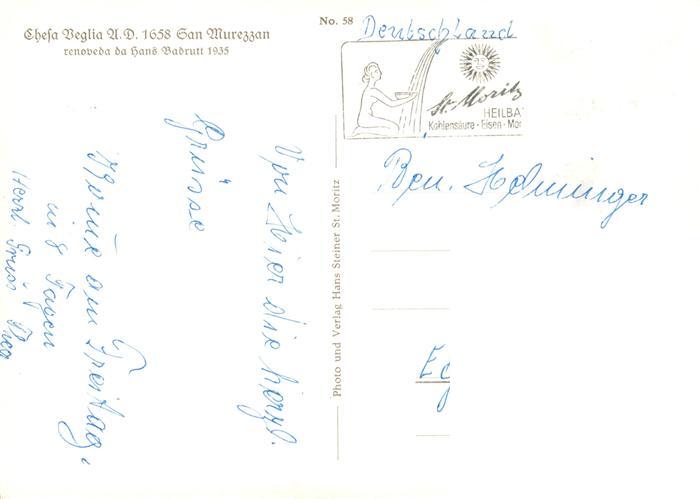 Chesa Veglia A.D. 1658 San Murezzan
renoveda da Hans Badrutt 1935
No. 58
Deutschland
St. Moritz
HEILBA
Kohlensäure - Eisen - Moo
Von Hier die herzl.
Grüsse
Komme am Freitag,
in 8 Tagen
Herzl. Gruss Thea
Photo und Verlag Hans Steiner St. Moritz
Ben. Holminger
Eg